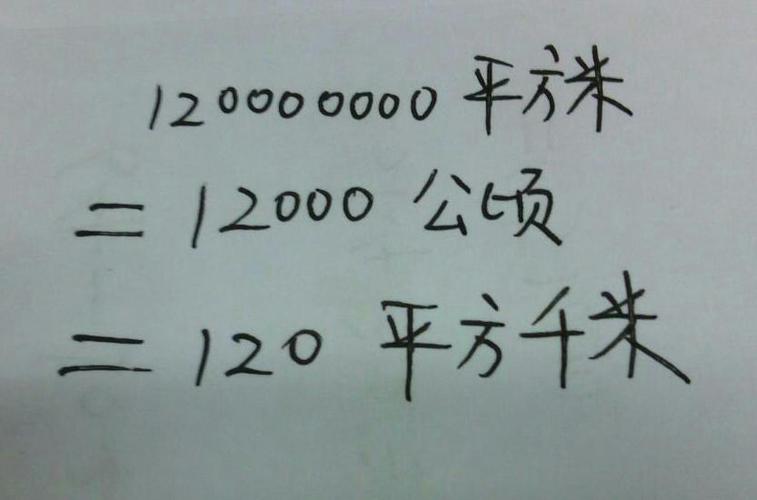 120000000平方米
=12000公顷
=120平方千米